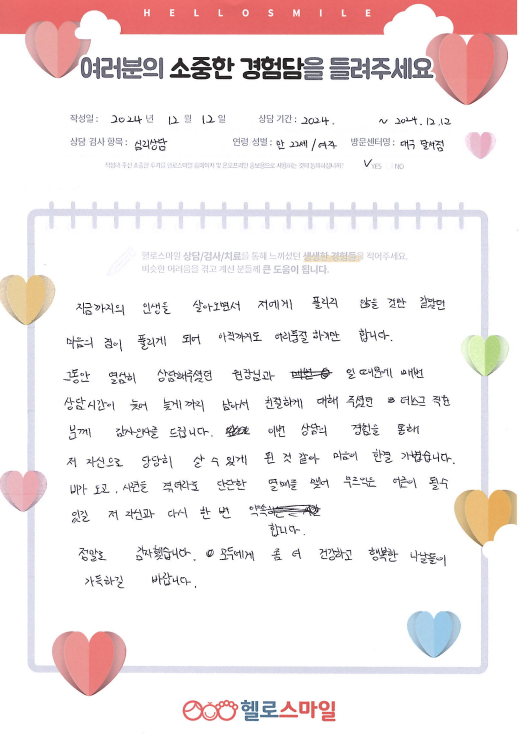 HELLOSMILE
여러분의 소중한 경험담을 들려주세요
작성일 : 2024 년 12 월 12 일 상담 기간 : 2024. ~ 2024.12.12
상담 검사 항목 : 심리상담 연령 성별 : 만 22세/여자 방문센터명 : 대구 달서점
YES NO
헬로스마일 상담/검사/치료를 통해 느끼셨던 생생한 경험들을 적어주세요.
비슷한 어려움을 겪고 계신 분들께 큰 도움이 됩니다.
지금까지의 인생을 살아오면서 저에게 풀리지 않을 것만 같았던
마음의 짐이 풀리게 되어 아직까지도 어리둥절 하기만 합니다.
그동안 열심히 상담해주셨던 원장님과 일 때문에 매번
상담시간이 늦어 늦게까지 남아서 친절하게 대해 주셨던 데스크 직원
분께 감사인사를 드립니다. 이번 상담의 경험을 통해
저 자신으로 당당히 살 수 있게 된 것 같아 마음이 한결 가볍습니다.
비가 오고, 시련을 겪더라도 단단한 열매를 맺어 무르익은 어른이 될 수
있길 저 자신과 다시 한 번 약속
합니다.
정말로 감사했습니다. 모두에게 좀 더 건강하고 행복한 나날들이
가득하길 바랍니다.
헬로스마일